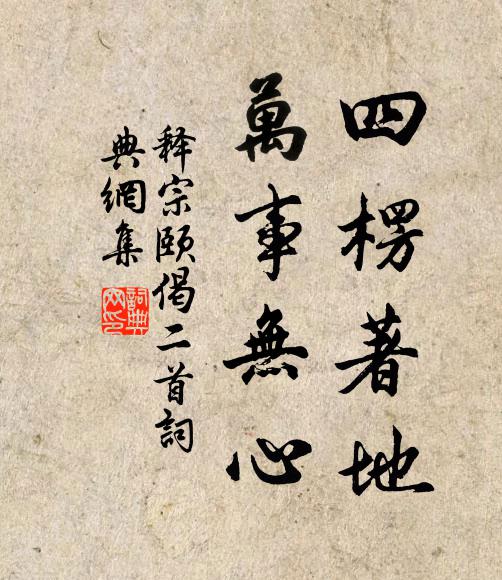 四楞著地
萬事無心
释宗頤偈二首詞
典網集
詞典
网印